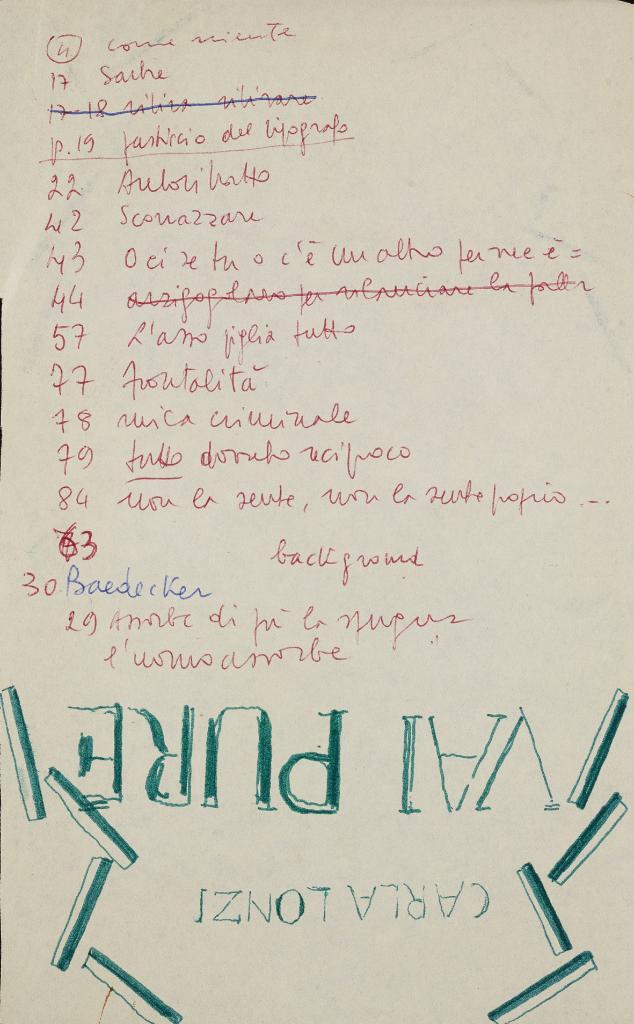 ④ come niente
17 Sartre
17-18 stilizza stilizzare
p.19 pasticcio del tipografo
22 Autoritratto
42 Scorrazzare
43 O ci sei tu o c'è un altro per me è =
44 per rilanciare la palla
57 L'asso piglia tutto
77 frontalità
78 mica criminale
79 tutto dovuto reciproco
84 non la sente, non la sente proprio ...
63 background
30 Baedecker
29 Assorbe di più la spugna
l'uomo assorbe
VAI PURE
CARLA LONZI